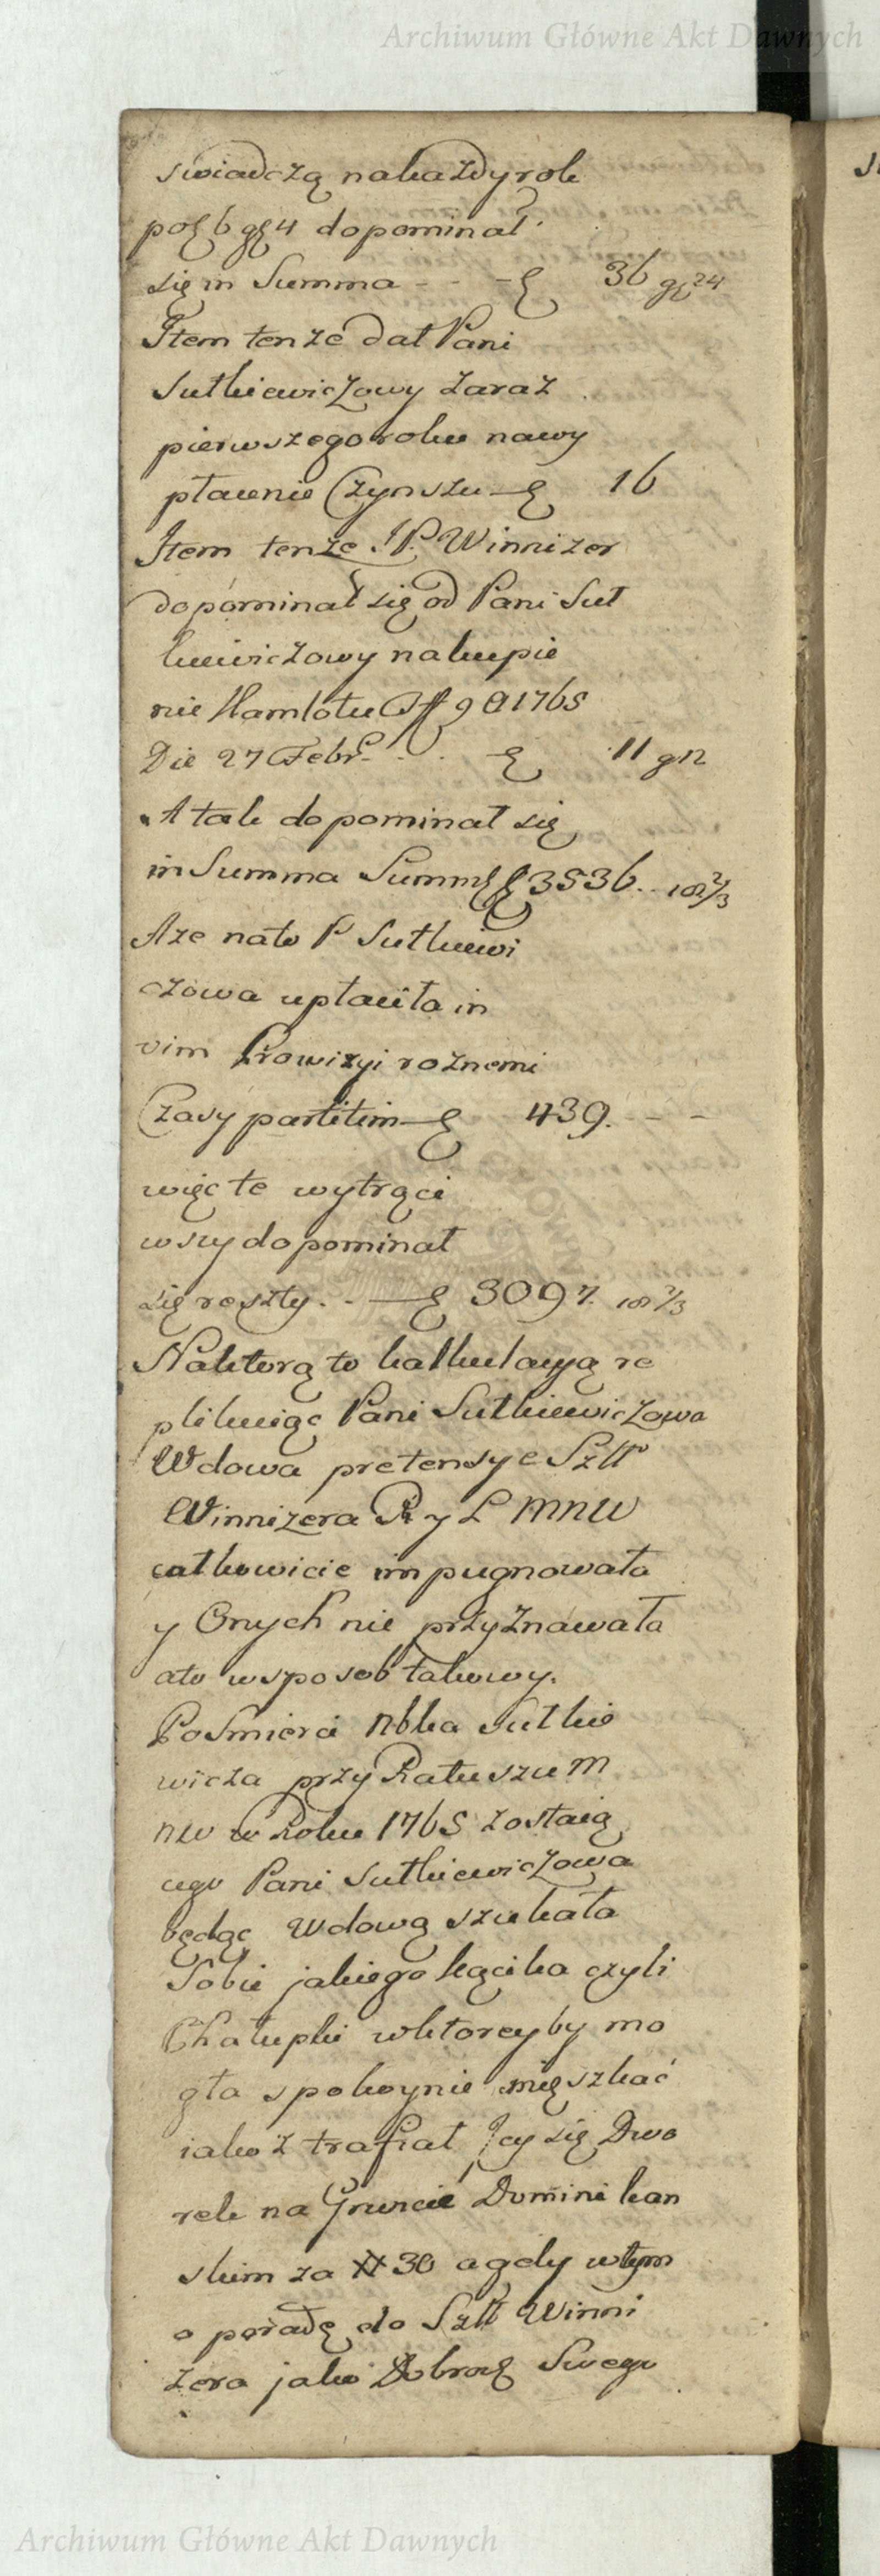 Archiwum Główne Akt Dawnych
swiadczą nakażdy rok
po 6 gr 4 dopominał
się in Summa - - - 36 gr 24
Item tenże dał Pani
Sutkiewiczowy zaraz
pierwszego roku nawy
płacenie Czynszu - 16
Item tenże JP. Winnizer
dopominał się od Pani Sut
kiewiczowy nakupie
nie Kamlotu 9 A 1765
Die 27 Febr. - . . 11 g 12
A tak dopominał się
in Summa Summ 3536. 18 2/3
Aze nato P Sutkiewi
czowa upłaciła in
vim Prowizyi roznemi
Czasy partitim - 439. - -
więc te wytrąci
wszy dopominał
się reszty. . - 3097. 18 2/3
Naktorą to kalkulacyą re
plikuiąc Pani Sutkiewiczowa
Wdowa pretensye Szll
Winnizera R y L MNW
całkowicie impugnowała
y Onych nie przyznawała
ato wsposob takowy.
Pośmierci Nbka Sutkie
wicza przy Ratuszu M
NW w Roku 1765 zostaią
cego Pani Sutkiewiczowa
będąc Wdową szukała
Sobie jakiego kącika czyli
Chałupki wktorey by mo
gła spokoynie mięszkać
iakoż trafiał Jey się Dwo
rek na Gruncie Dominikan
skim za # 30 agdy wtym
o poradę do Szll Winni
zera jako Dobrodz Swego
Archiwum Główne Akt Dawnych